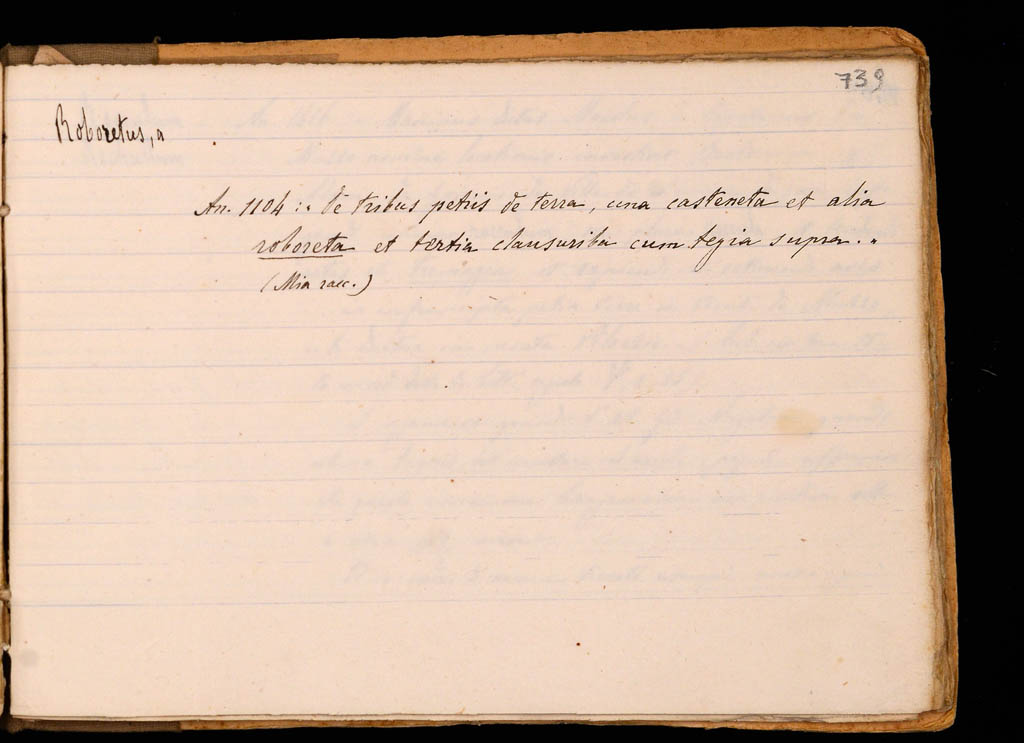 739
Roboretus, a
An. 1104 : "de tribus petiis de terra, una casteneta et alia
roboreta et tertia clausuriba cum tegia supra. "
(Mia racc.)